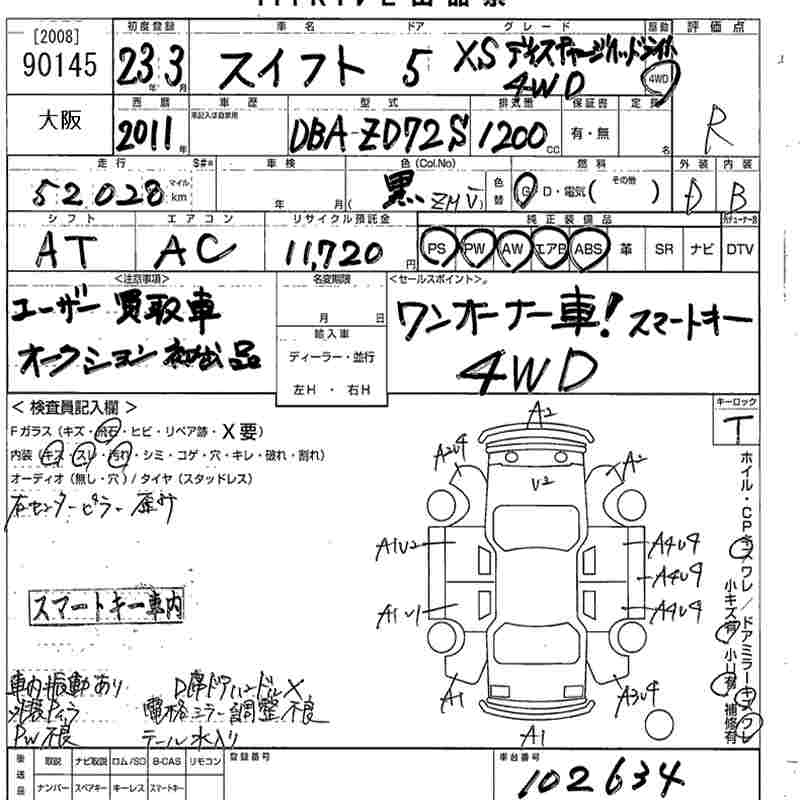 [2008]
90145
大阪
初度登録
23年3月
車名
スイフト
ドア
5
グレード
XS ディスチャージヘッドライト
4WD
駆動
4WD
評価点
R
西暦
2011年
車歴
未記入は自家用
型式
DBA-ZD72S
排気量
1200cc
保証書
有・無
定員
名
走行
52028 マイル km
S#
車検
年 月
色(Col.No)
黒 ZMV
色替
燃料
G D・電気( その他 )
外装
D
内装
B
シフト
AT
エアコン
AC
リサイクル預託金
11,720円
純正装備品
PS PW AW エアB ABS 革 SR ナビ DTV
<注意事項>
ユーザー買取車
オークション初出品
名変期限
月 日
輸入車
ディーラー・並行
左H・右H
<セールスポイント>
ワンオーナー車! スマートキー
4WD
<検査員記入欄>
Fガラス(キズ・飛石・ヒビ・リペア跡・X要)
内装(キズ・スレ・汚れ・シミ・コゲ・穴・キレ・破れ・割れ)
オーディオ(無し・穴)/タイヤ(スタッドレス)
右センターピラー歪み
スマートキー車内
車内振動あり
D席ドアハンドルX
電格ミラー調整不良
PW不良
テール水入り
キーロック
T
ホイル・CPキズワレ/ドアミラーキズワレ
小キズ有 小U有 補修有
A2
A2U4
A2
U2
A1U2
A4U4
A4U4
A1U1
A4U4
A1
A3U4
A1
後送品
取説 ナビ取説 ロム/SD B-CAS リモコン
ナンバー スペアキー キーレス スマートキー
登録番号
車台番号
102634